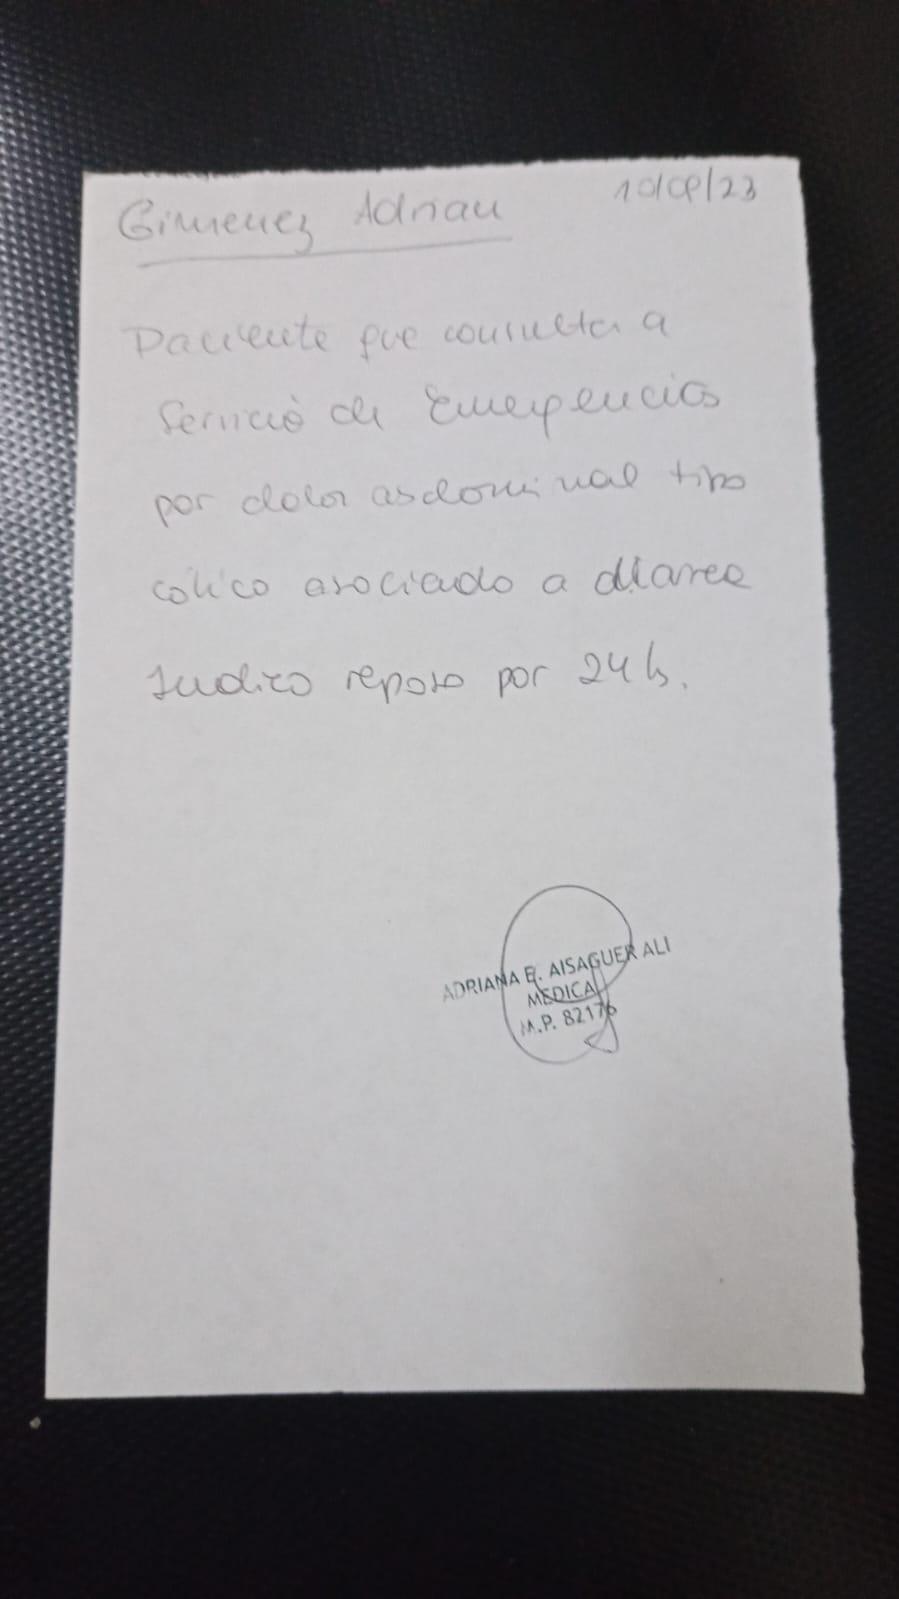 Gimenez Adrian
10/09/23
Paciente que consulta a
Servicio de Emergencias
por dolor asdominal tipo
cólico asociado a diarrea
Indico reposo por 24 hs.
ADRIANA E. AISAGUER ALI
MEDICA
M.P. 82176